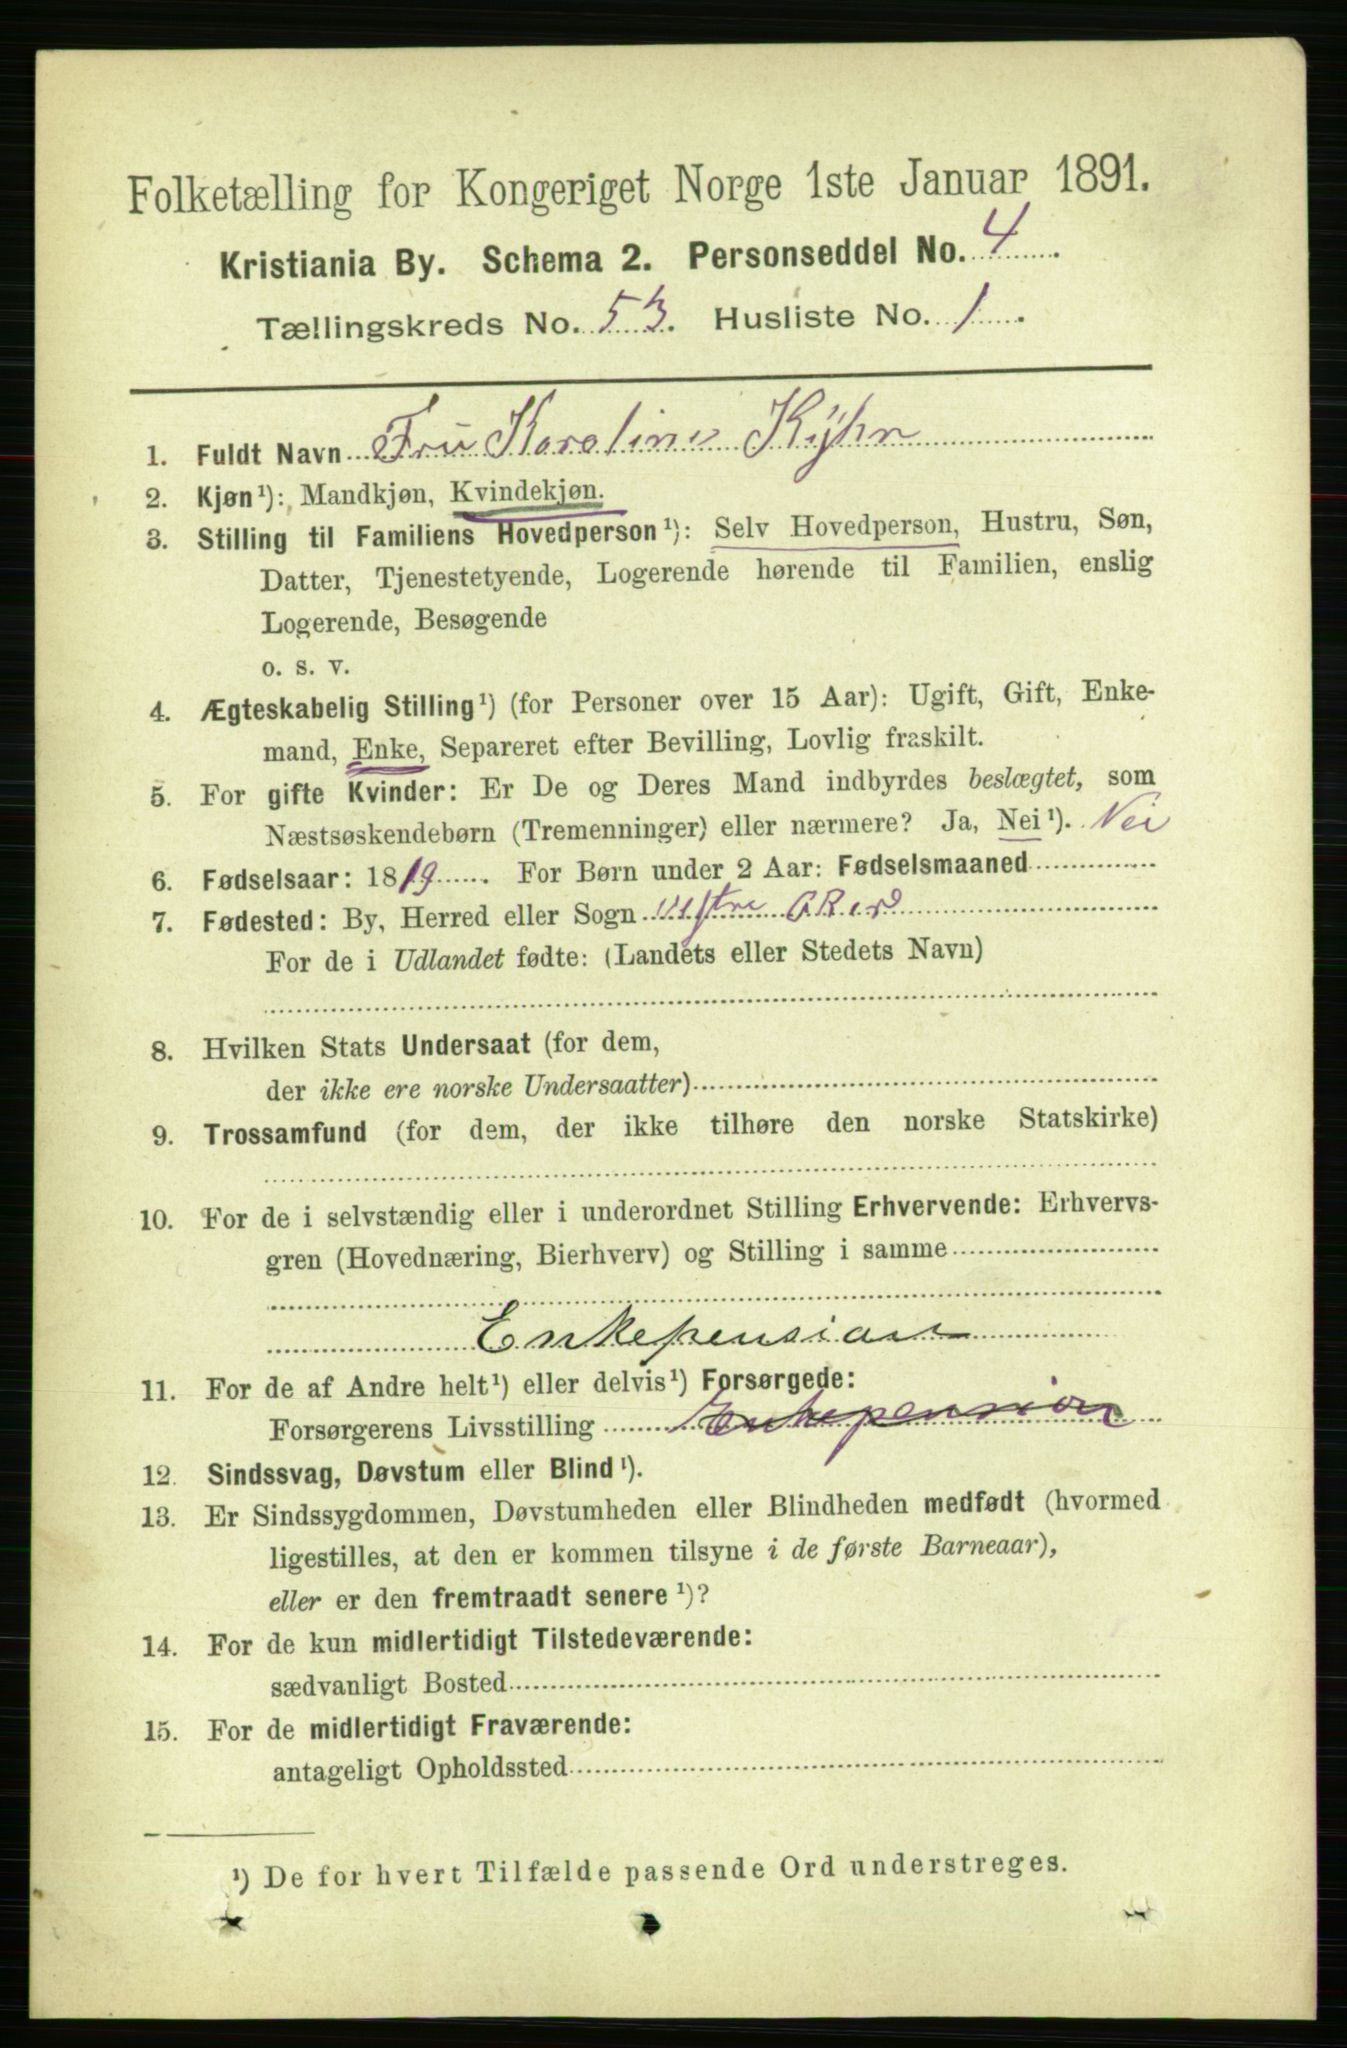 Folketælling for Kongeriget Norge 1ste Januar 1891.
Kristiania By. Schema 2. Personseddel No. 4.
Tællingskreds No. 53. Husliste No. 1.
1. Fuldt Navn Fru Karoline Kÿhn
2. Kjøn¹): Mandkjøn, Kvindekjøn.
3. Stilling til Familiens Hovedperson¹): Selv Hovedperson, Hustru, Søn,
Datter, Tjenestetyende, Logerende hørende til Familien, enslig
Logerende, Besøgende
o. s. v.
4. Ægteskabelig Stilling¹) (for Personer over 15 Aar): Ugift, Gift, Enke-
mand, Enke, Separeret efter Bevilling, Lovlig fraskilt.
5. For gifte Kvinder: Er De og Deres Mand indbyrdes beslægtet, som
Næstsøskendebørn (Tremenninger) eller nærmere? Ja, Nei¹). Nei
6. Fødselsaar: 1819. For Børn under 2 Aar: Fødselsmaaned
7. Fødested: By, Herred eller Sogn
For de i Udlandet fødte: (Landets eller Stedets Navn)
8. Hvilken Stats Undersaat (for dem,
der ikke ere norske Undersaatter)
9. Trossamfund (for dem, der ikke tilhøre den norske Statskirke)
10. For de i selvstændig eller i underordnet Stilling Erhvervende: Erhvervs-
gren (Hovednæring, Bierhverv) og Stilling i samme
Enkepension
11. For de af Andre helt¹) eller delvis¹) Forsørgede:
Forsørgerens Livsstilling Enkepension
12. Sindssvag, Døvstum eller Blind¹).
13. Er Sindssygdommen, Døvstumheden eller Blindheden medfødt (hvormed
ligestilles, at den er kommen tilsyne i de første Barneaar),
eller er den fremtraadt senere¹)?
14. For de kun midlertidigt Tilstedeværende:
sædvanligt Bosted
15. For de midlertidigt Fraværende:
antageligt Opholdssted
¹) De for hvert Tilfælde passende Ord understreges.